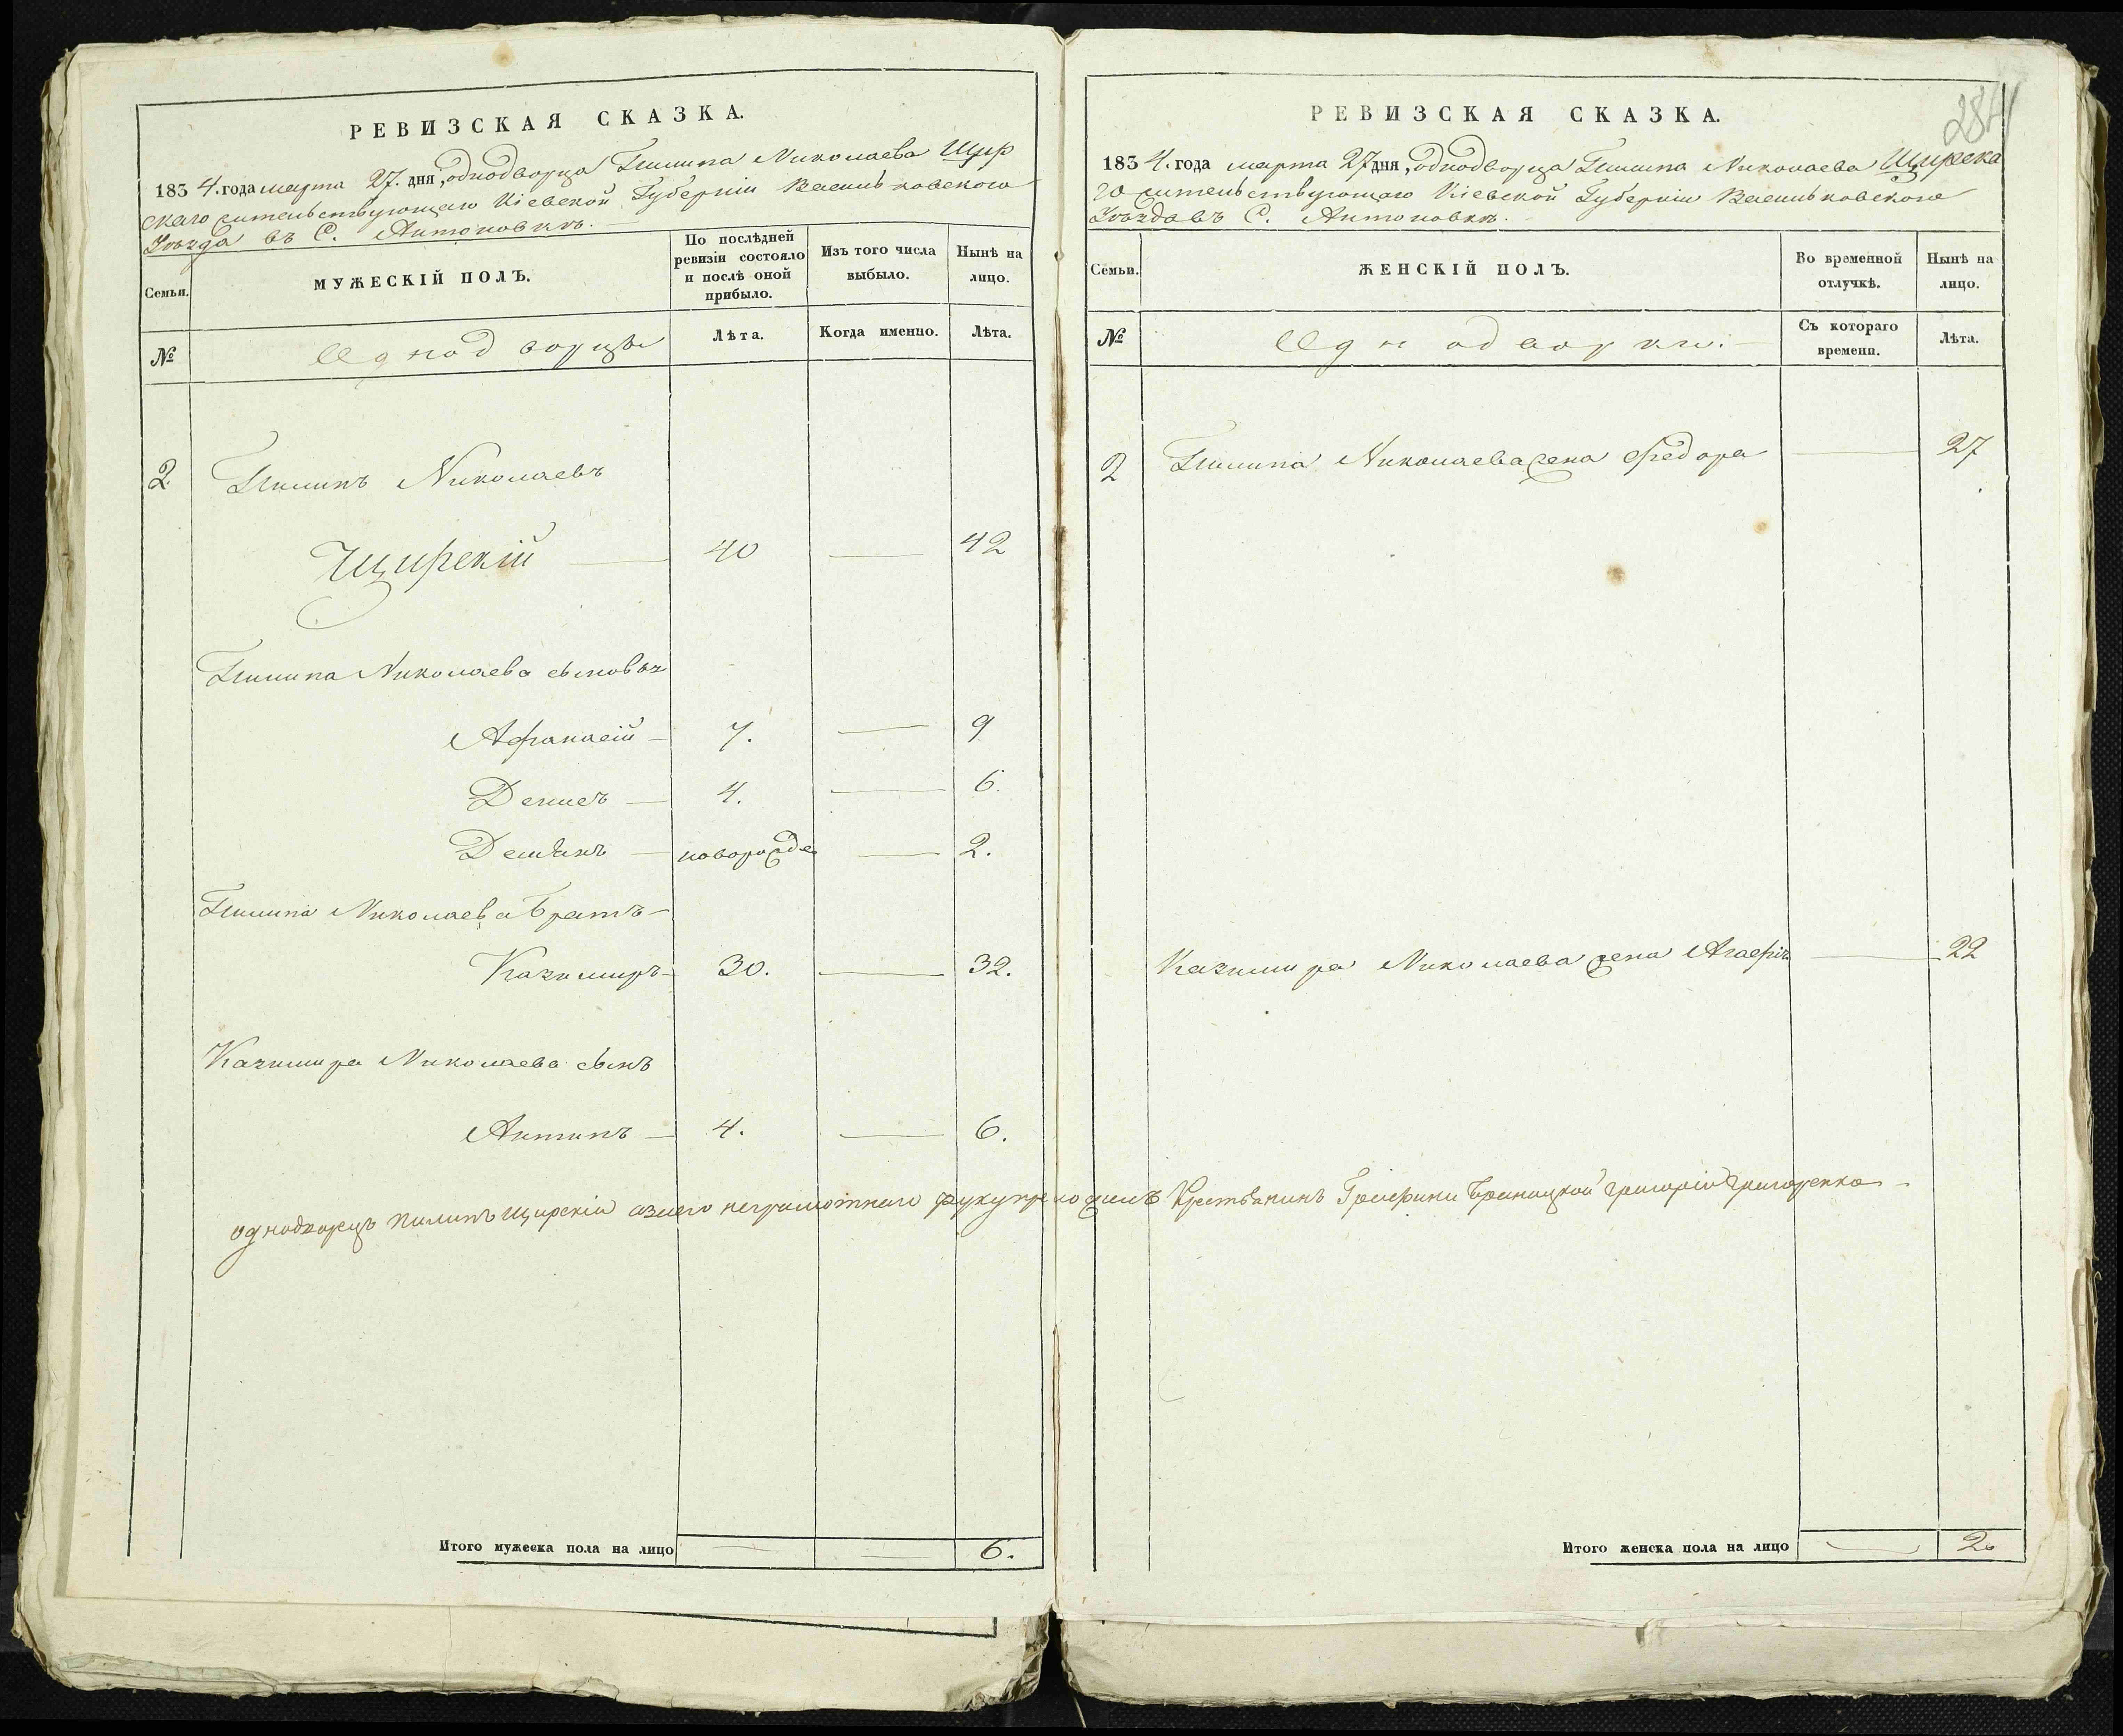 РЕВИЗСКАЯ СКАЗКА.
1834. года марта 27. дня, однодворца Пилипа Николаева Щир
скаго жительствующаго Кіевской Губерніи Васильковского
Уѣзда въ С. Антоновкѣ.
Семьи.
МУЖЕСКІЙ ПОЛЪ.
По послѣдней ревизіи состояло и послѣ оной прибыло.
Изъ того числа выбыло.
Нынѣ на лицо.
№
Однодворцы
Лѣта.
Когда именно.
Лѣта.
2. Пилипъ Николаевъ
Щирскій — 40 — 42
Пилипа Николаева сыновья
Афанасій — 7. — 9
Денисъ — 4. — 6.
Демьянъ — новорожде — 2.
Пилипа Николаева братъ —
Казимиръ — 30. — 32.
Казимира Николаева сынъ
Антипъ — 4. — 6.
однодворецъ Пилипъ Щирскій азанего неграмотнаго руку приложилъ Крестьянинъ Графини Браницкой Григорій Григоренко
Итого мужеска пола на лицо — — 6.
284
РЕВИЗСКАЯ СКАЗКА.
1834. года марта 27 дня, однодворца Пилипа Николаева Щирска
го жительствующаго Кіевской Губерніи Васильковского
Уѣзда въ С. Антоновкѣ.
Семьи.
ЖЕНСКІЙ ПОЛЪ.
Во временной отлучкѣ.
Нынѣ на лицо.
№
Однодворки.
Съ котораго времени.
Лѣта.
2 Пилипа Николаева жена Федора — 27
Казимира Николаева жена Агафія — 22
Итого женска пола на лицо — 2.